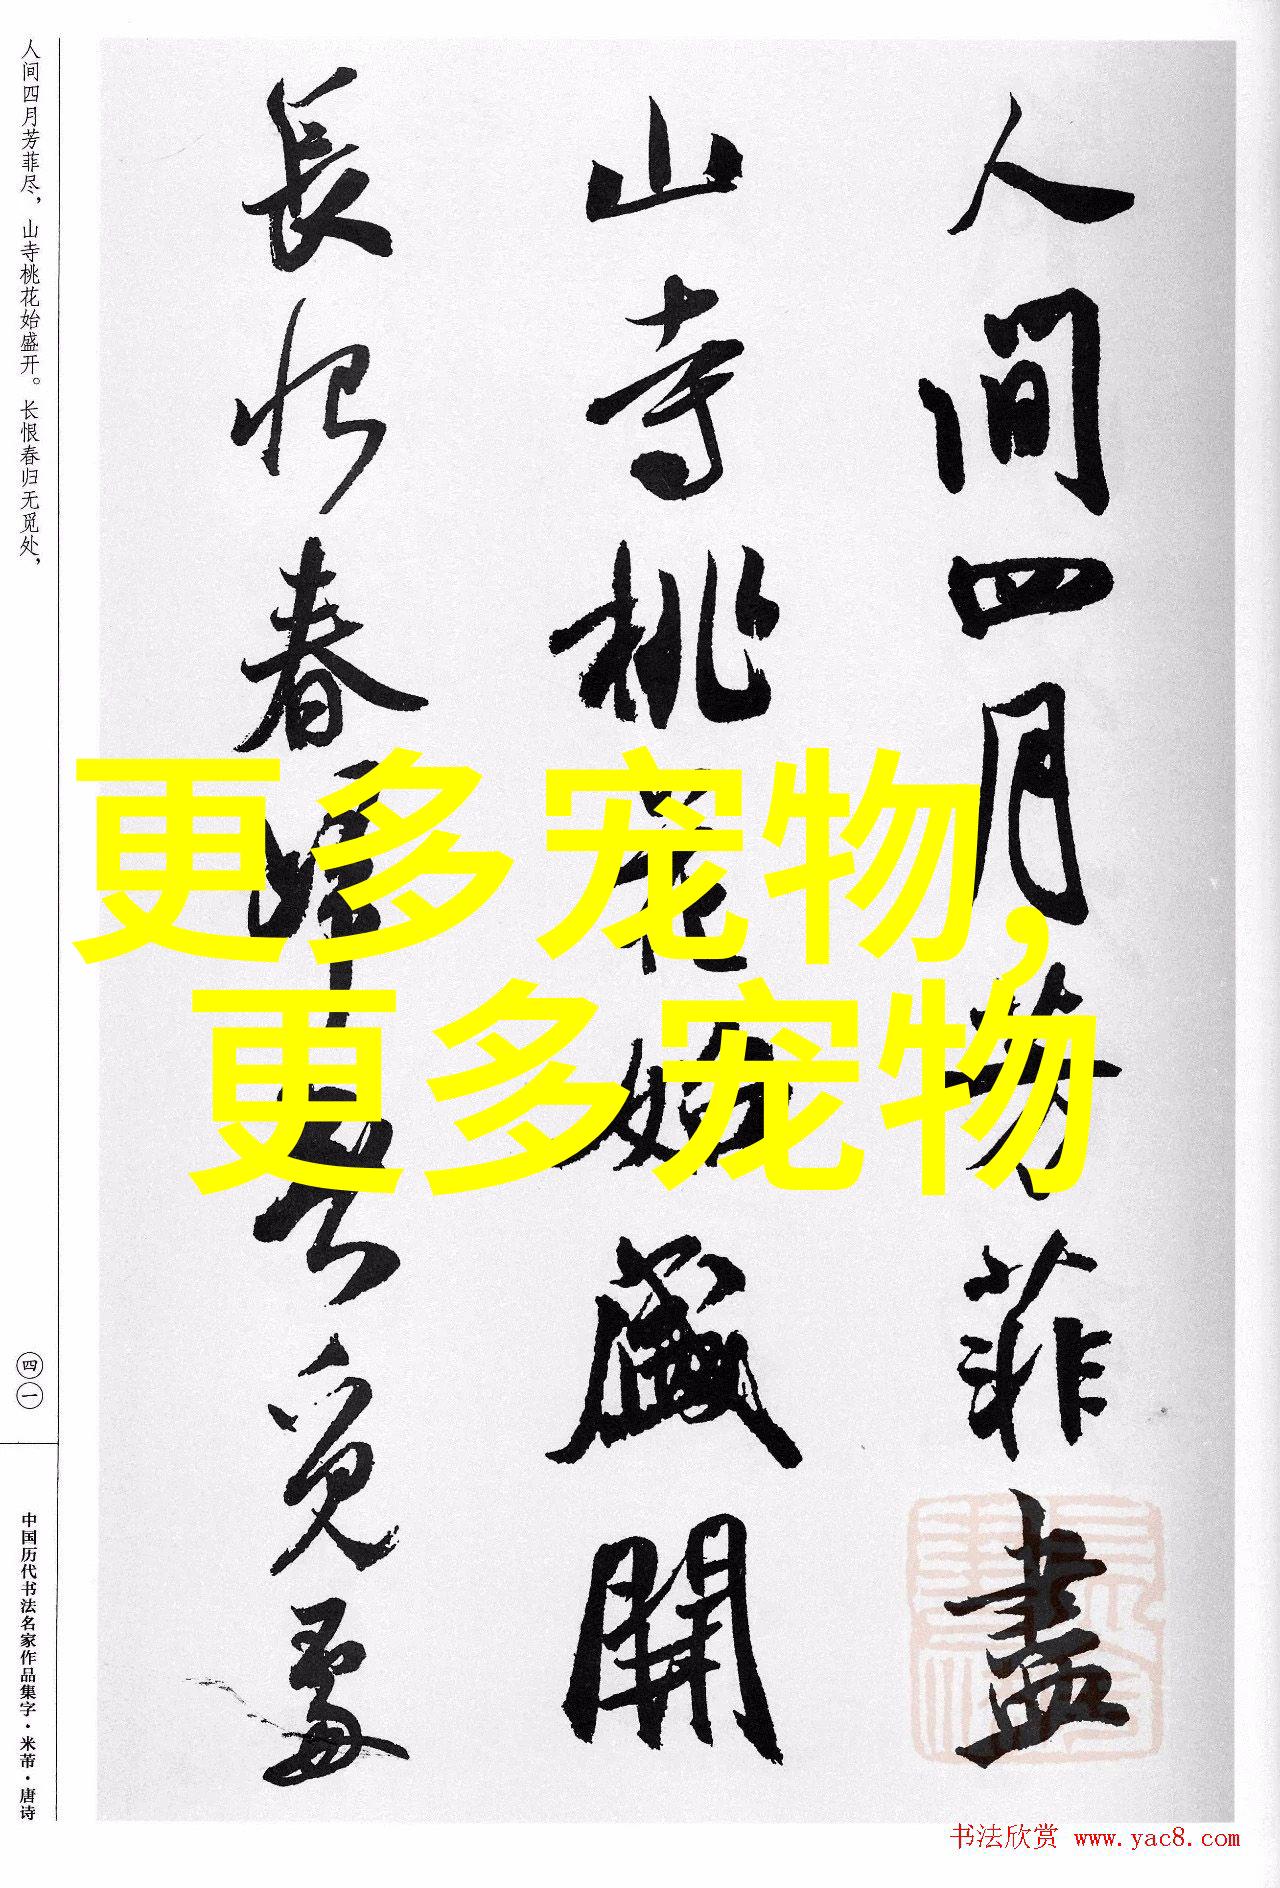 人間四月芳菲盡
山寺桃花始盛開
長恨春歸無覓處
更多宠物,
更多宠物
人间四月芳菲尽，山寺桃花始盛开。长恨春归无觅处，
四一
中国历代书法名家作品集字·米芾·唐诗
书法欣赏 www.yac8.com